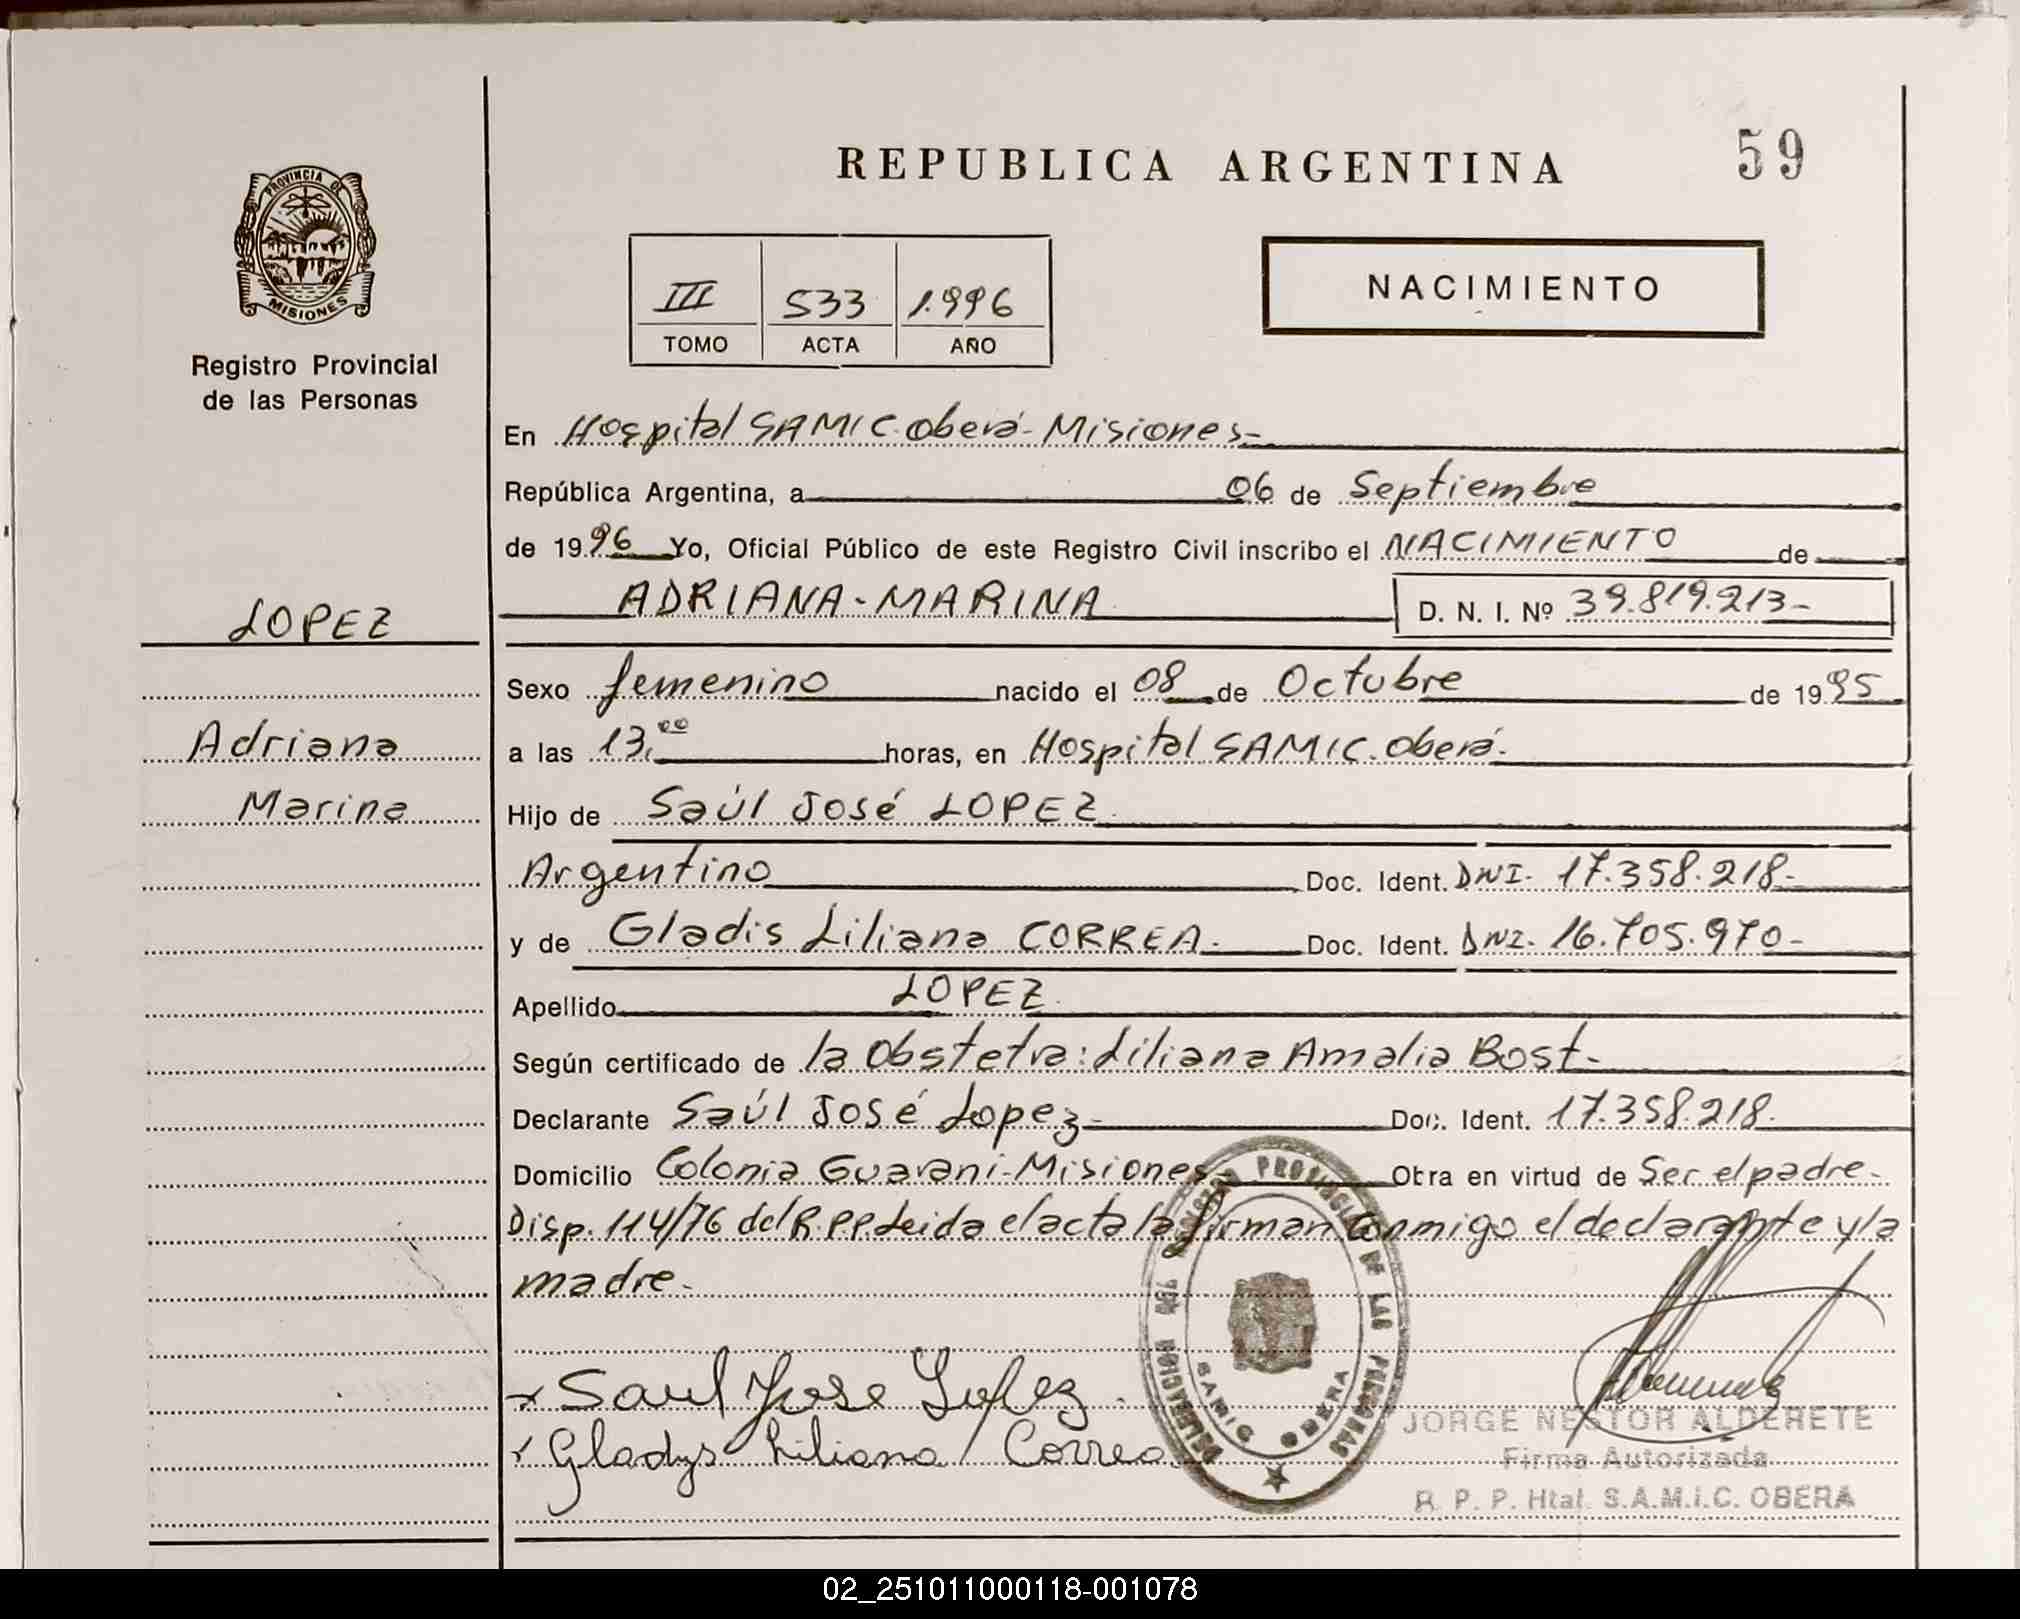 REPUBLICA ARGENTINA
59
PROVINCIA DE
MISIONES
Registro Provincial
de las Personas
III 533 1.996
TOMO ACTA AÑO
NACIMIENTO
En Hospital SAMIC. Oberá - Misiones -
República Argentina, a 06 de Septiembre
de 1996 Yo, Oficial Público de este Registro Civil inscribo el NACIMIENTO de
ADRIANA - MARINA D. N. I. Nº 39.819.213-
LOPEZ
Adriana
Marina
Sexo femenino nacido el 08 de Octubre de 1995
a las 13.00 horas, en Hospital SAMIC. Oberá.
Hijo de Saúl José LOPEZ.
Argentino Doc. Ident. DNI. 17.358.218-
y de Gladis Liliana CORREA. Doc. Ident. DNI. 16.705.970-
Apellido LOPEZ.
Según certificado de la Obstetra: Liliana Amalia Bost.-
Declarante Saúl José Lopez- Doc. Ident. 17.358.218.
Domicilio Colonia Guaraní - Misiones- Obra en virtud de Ser el padre -
Disp. 114/76 del R.P.P. Leida el acta la firman conmigo el declarante y la
madre -
Saul Jose Lopez
Gladys Liliana Correa
DELEGACION REGISTRO PROVINCIAL DE LAS PERSONAS
SAMIC OBERA
JORGE NESTOR ALDERETE
Firma Autorizada
R. P. P. Htal. S.A.M.I.C. OBERA
02_251011000118-001078